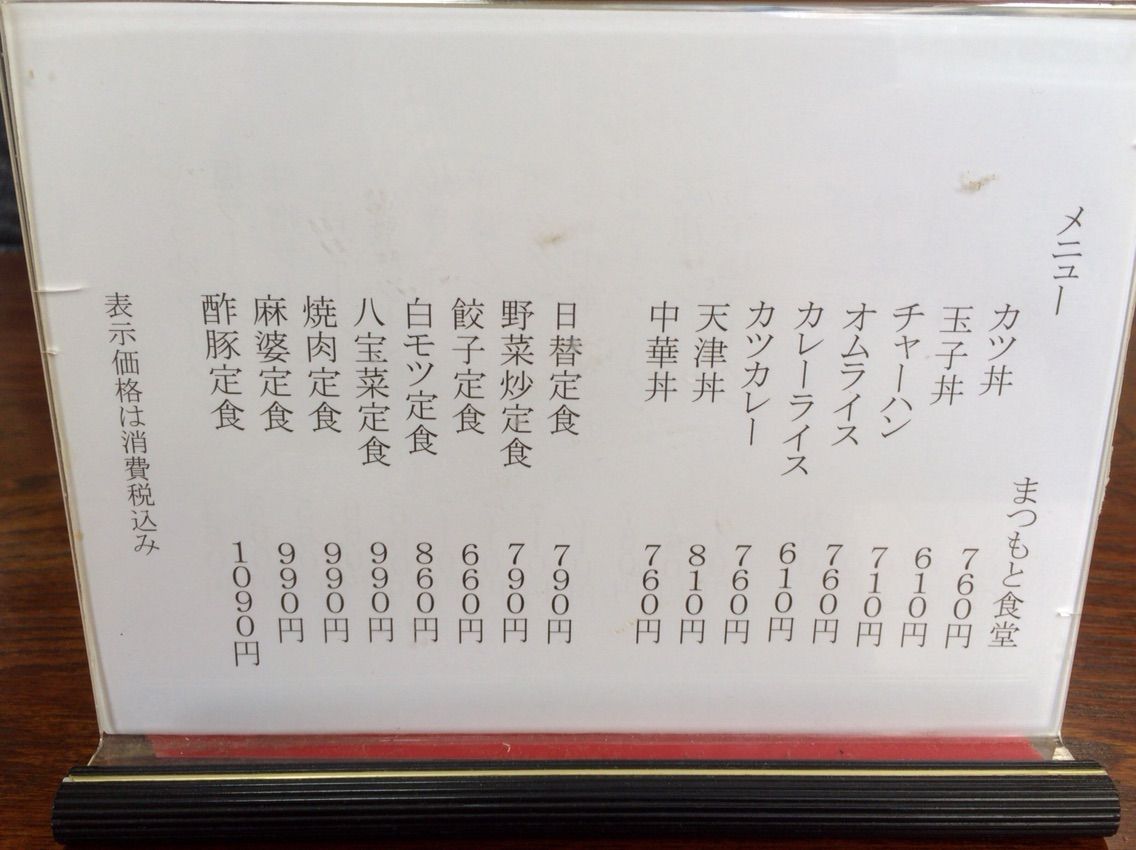 メニュー
まつもと食堂
カツ丼 ７６０円
玉子丼 ６１０円
チャーハン ７１０円
オムライス ７６０円
カレーライス ６１０円
カツカレー ７６０円
天津丼 ８１０円
中華丼 ７６０円
日替定食 ７９０円
野菜炒定食 ７９０円
餃子定食 ６６０円
白モツ定食 ８６０円
八宝菜定食 ９９０円
焼肉定食 ９９０円
麻婆定食 ９９０円
酢豚定食 １０９０円
表示価格は消費税込み